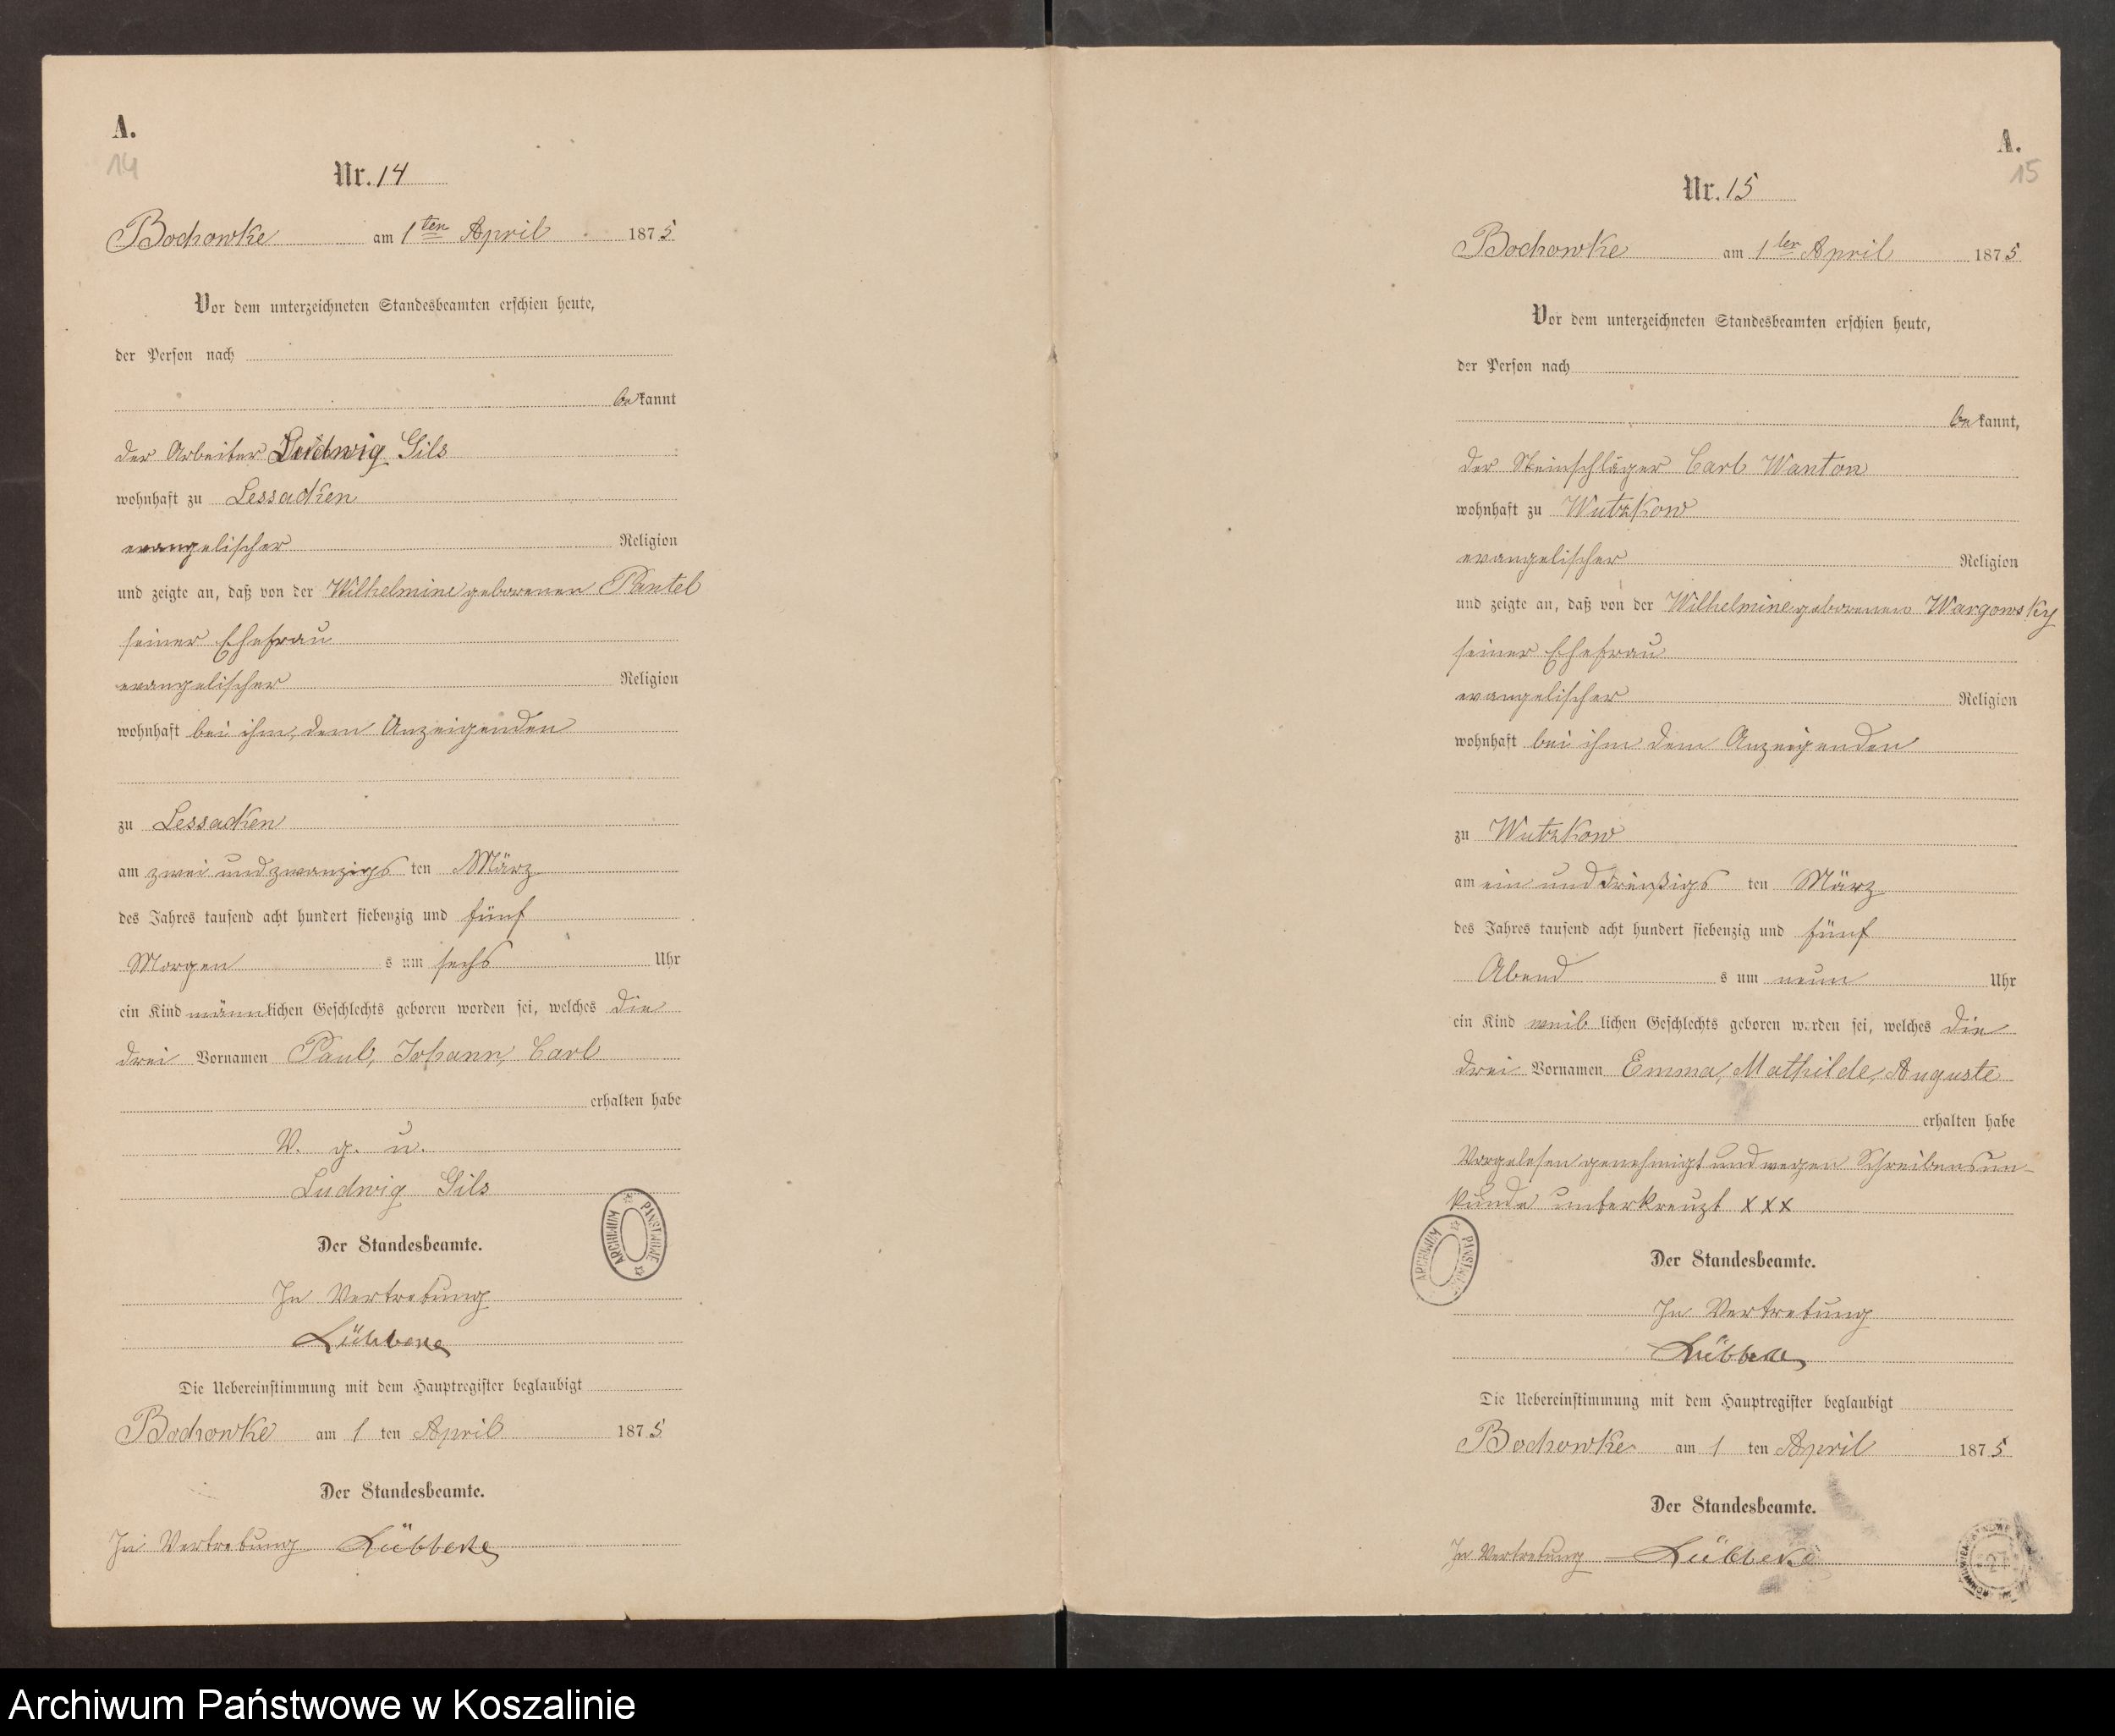 A.
14
Nr. 14
Bochowke am 1ten April 1875
Vor dem unterzeichneten Standesbeamten erschien heute,
der Person nach
bekannt
der Arbeiter Ludwig Gils
wohnhaft zu Lessacken
evangelischer Religion
und zeigte an, daß von der Wilhelmine geborenen Pantel
seiner Ehefrau
evangelischer Religion
wohnhaft bei ihm, dem Anzeigenden
zu Lessacken
am zwei und zwanzigs ten März
des Jahres tausend acht hundert siebenzig und fünf
Morgen s um sechs Uhr
ein Kind männlichen Geschlechts geboren worden sei, welches die
drei Vornamen Paul, Johann, Carl
erhalten habe
V. g. u.
Ludwig Gils
Der Standesbeamte.
In Vertretung
Lübbeke
Die Uebereinstimmung mit dem Hauptregister beglaubigt
Bochowke am 1 ten April 1875
Der Standesbeamte.
In Vertretung Lübbeke
ARCHIWUM PAŃSTWOWE
A.
15
Nr. 15
Bochowke am 1ten April 1875
Vor dem unterzeichneten Standesbeamten erschien heute,
der Person nach
bekannt,
der Steinschläger Carl Wanton
wohnhaft zu Wutzkow
evangelischer Religion
und zeigte an, daß von der Wilhelmine geborenen Wargowsky
seiner Ehefrau
evangelischer Religion
wohnhaft bei ihm dem Anzeigenden
zu Wutzkow
am ein und dreißigs ten März
des Jahres tausend acht hundert siebenzig und fünf
Abend s um neun Uhr
ein Kind weiblichen Geschlechts geboren worden sei, welches die
drei Vornamen Emma, Mathilde, Auguste
erhalten habe
Vorgelesen genehmigt und wegen Schreibensun-
kunde unterkreuzt xxx
Der Standesbeamte.
In Vertretung
Lübbeke
Die Uebereinstimmung mit dem Hauptregister beglaubigt
Bochowke am 1 ten April 1875
Der Standesbeamte.
In Vertretung Lübbeke
ARCHIWUM PAŃSTWOWE
Archiwum Państwowe w Koszalinie